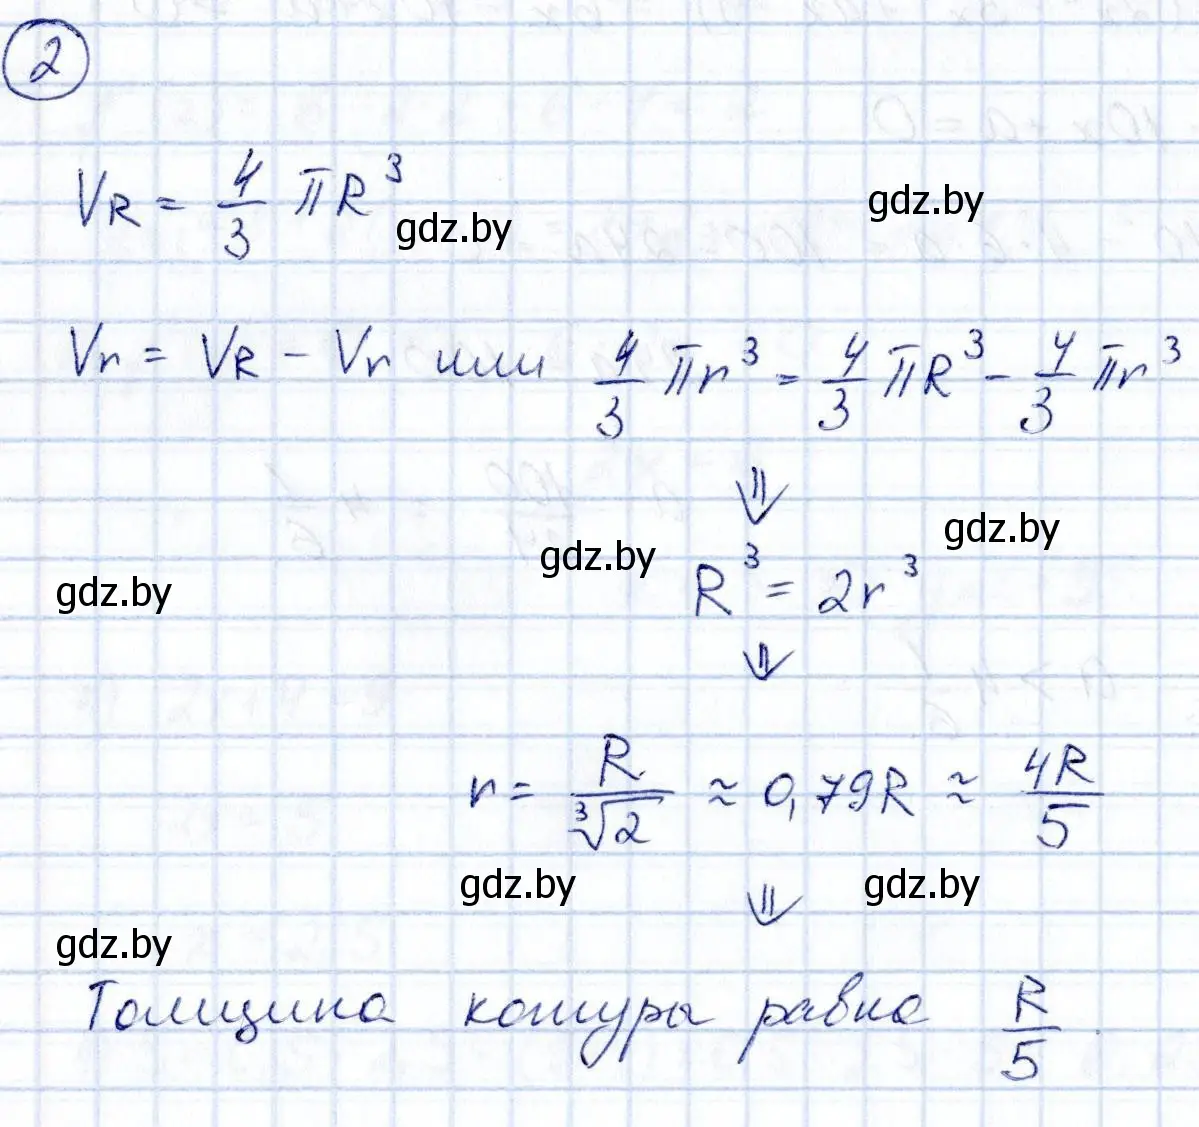 2
V_R = 4/3 πR³
gdz.by
gdz.by
Vr = V_R − Vr или 4/3 πr³ = 4/3 πR³ − 4/3 πr³
⇓
gdz.by
gdz.by
gdz.by
R³ = 2r³
⇓
r = R/∛2 ≈ 0,79R ≈ 4R/5
gdz.by
gdz.by
⇓
gdz.by
Толщина кожуры равна R/5.